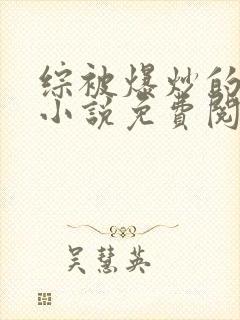 综被爆炒的
小说免費阅
吴慧英